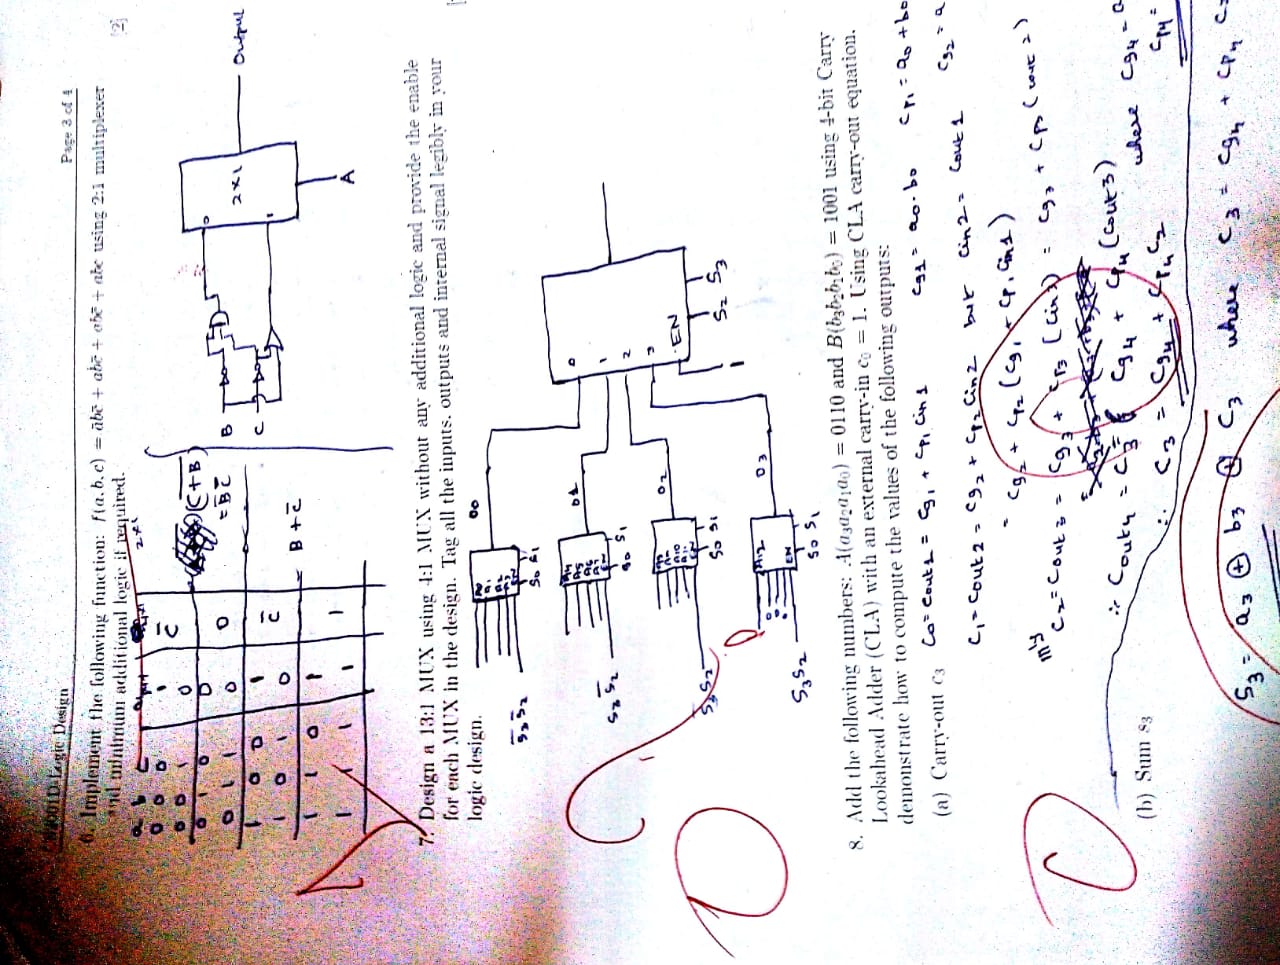 Logic Design
Page 3 of 4
6. Implement the following function: f(a,b,c) = āb̄c̄ + ab̄c̄ + abc̄ + abc using 2:1 multiplexer
and minimum additional logic if required.
[2]
a b c
2x1
0 0 0 1 c̄
0 0 1 0
0 1 0 0 0
0 1 1 0
1 0 0 1 c̄
1 0 1 0
1 1 0 1 1
1 1 1 1
(C+B)
= B̄C̄
B + C̄
B
C
0
1
2x1
Output
A
7. Design a 13:1 MUX using 4:1 MUX without any additional logic and provide the enable
for each MUX in the design. Tag all the inputs, outputs and internal signal legibly in your
logic design.
O0
S̄3 S̄2
S0 S1
A4
A5
A6
A7
EN
O1
S3 S̄2
S0 S1
A10
O2
S̄3 S2
S0 S1
A12
0
0
0
EN
O3
S3 S2
S0 S1
0
1
2
3
EN
1
S2 S3
8. Add the following numbers: A(a3a2a1a0) = 0110 and B(b3b2b1b0) = 1001 using 4-bit Carry
Lookahead Adder (CLA) with an external carry-in c0 = 1. Using CLA carry-out equation,
demonstrate how to compute the values of the following outputs:
(a) Carry-out c3
C0 = Cout1 = Cg1 + Cp1 Cin1 Cg1 = a0.b0 Cp1 = a0 + b0
C1 = Cout2 = Cg2 + Cp2 Cin2 but Cin2 = Cout1 Cg2 = a
= Cg2 + Cp2 (Cg1 + Cp1 Cin1)
m'ly C2 = Cout3 = Cg3 + Cp3 (Cin3) = Cg3 + Cp3 (Cout2)
∴ Cout4 = C3 = Cg4 + Cp4 (Cout3) where Cg4 = a
(b) Sum s3
∴ C3 = Cg4 + Cp4 C2 Cp4 =
S3 = a3 ⊕ b3 ⊕ C3 where C3 = Cg4 + Cp4 C2